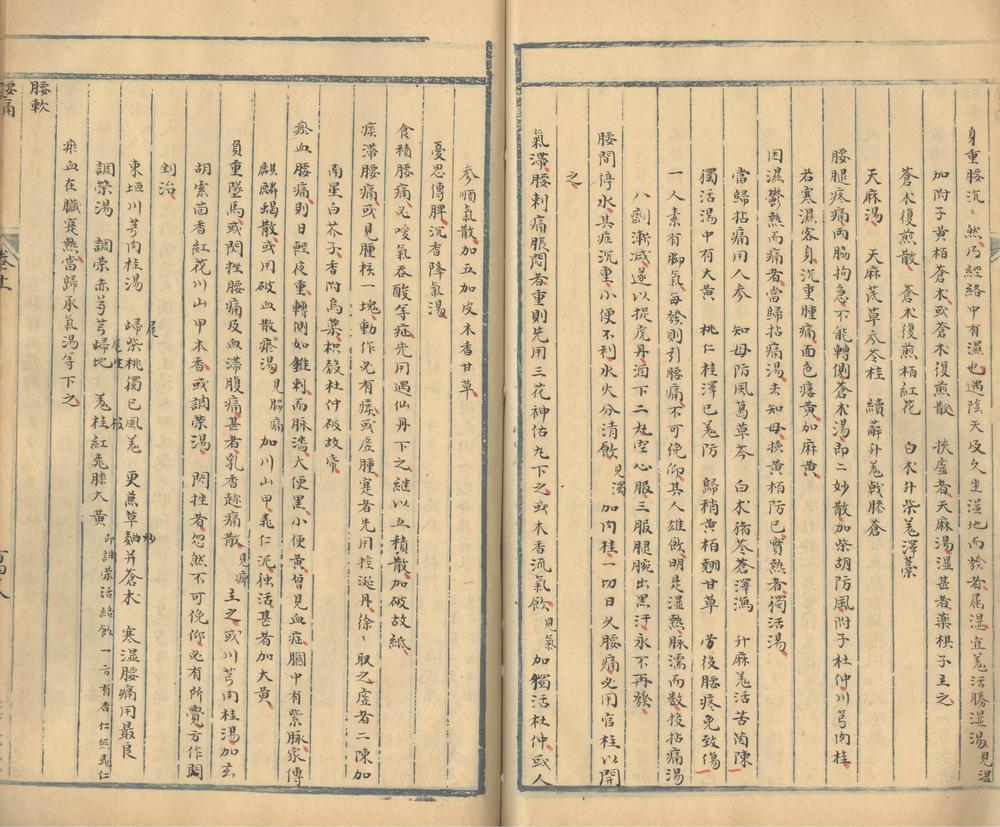 身重腰沉沉然乃經絡中有濕也遇陰天及久坐濕地而發者屬濕宜羗活勝湿湯見湿
加附子黄栢蒼朮或蒼朮復煎散 挾虚者天麻湯湿甚者藥棋子主之
蒼朮復煎散 蒼朮復煎栢紅花 白朮升柴羗澤藁
天麻湯 天麻芪草 苓桂
腰腿疼痛两脇拘急不能轉側蒼朮湯即二妙散加柴胡防風附子杜仲川芎肉桂
若寒濕客身沉重腫痛面色痿黄加麻黄
因濕鬱熱而痛者當歸拈痛湯去知母換黄栢防已實熱者獨活湯
當歸拈痛用人参 知母防風葛草芩 白朮猪苓蒼澤 升麻羗活苦茵陳
獨活湯中有大黄 桃仁桂澤已羗防 歸稍黄栢翹甘草 劳後腰疼免致傷
一人素有脚氣每發則引腰痛不可俛仰其人雄飲明是湿熱脉濡而数投拈痛湯
八劑漸减遂以捉虎丹酒下二丸空心服三服腿腕出黑汗永不再發
腰間停水其症沉重小便不利水火分清飲見濁加肉桂一切日久腰痛必用官桂以開
之
氣滞腰刺痛脹悶者重則先用三花神佑丸下之或木香流氣飲見氣加獨活杜仲或人
参順氣散加五加皮木香甘草
憂思傳脾沉香降氣湯
食積腰痛必噯氣吞酸等症先用遇仙丹下之継以五積散加破故紙
痰滞腰痛或見腫核一塊動作必有痰或虚腫寔者先用控涎丹徐徐取之虚者二陳加
南星白芥子香附烏藥枳殼杜仲破故
瘀血腰痛則日輕夜重轉側如錐刺而脉濇大便黑小便黄曾見血症膕中有紫脉家傳
麒麟蝎散或用破血散瘀湯見脇痛加川山甲 仁 活甚者加大黄
負重墜馬或閃挫腰痛及血滞腹痛甚者乳香趂痛散見痹主之或川芎肉桂湯加玄
胡索茴香紅花川山甲木香或調荣湯 閃挫者忽然不可俛仰必有所覺方作閃
剉治
東垣川芎肉桂湯 歸尾柴桃獨已風羗 更 草 并蒼朮 寒湿腰痛用最良
調荣湯 調荣赤芍芎歸地 羗桂紅 膝大黄即調荣活絡飲一方有杏仁無 仁
瘀血在臟寔熱當歸承氣湯等下之
腰軟
腰痛